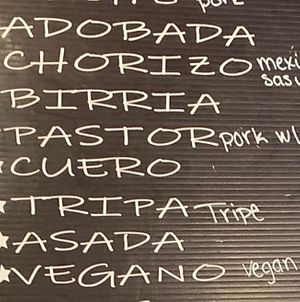 pork
ADOBADA
CHORIZO
BIRRIA
PASTOR pork w/
CUERO
TRIPA Tripe
ASADA
VEGANO vegan